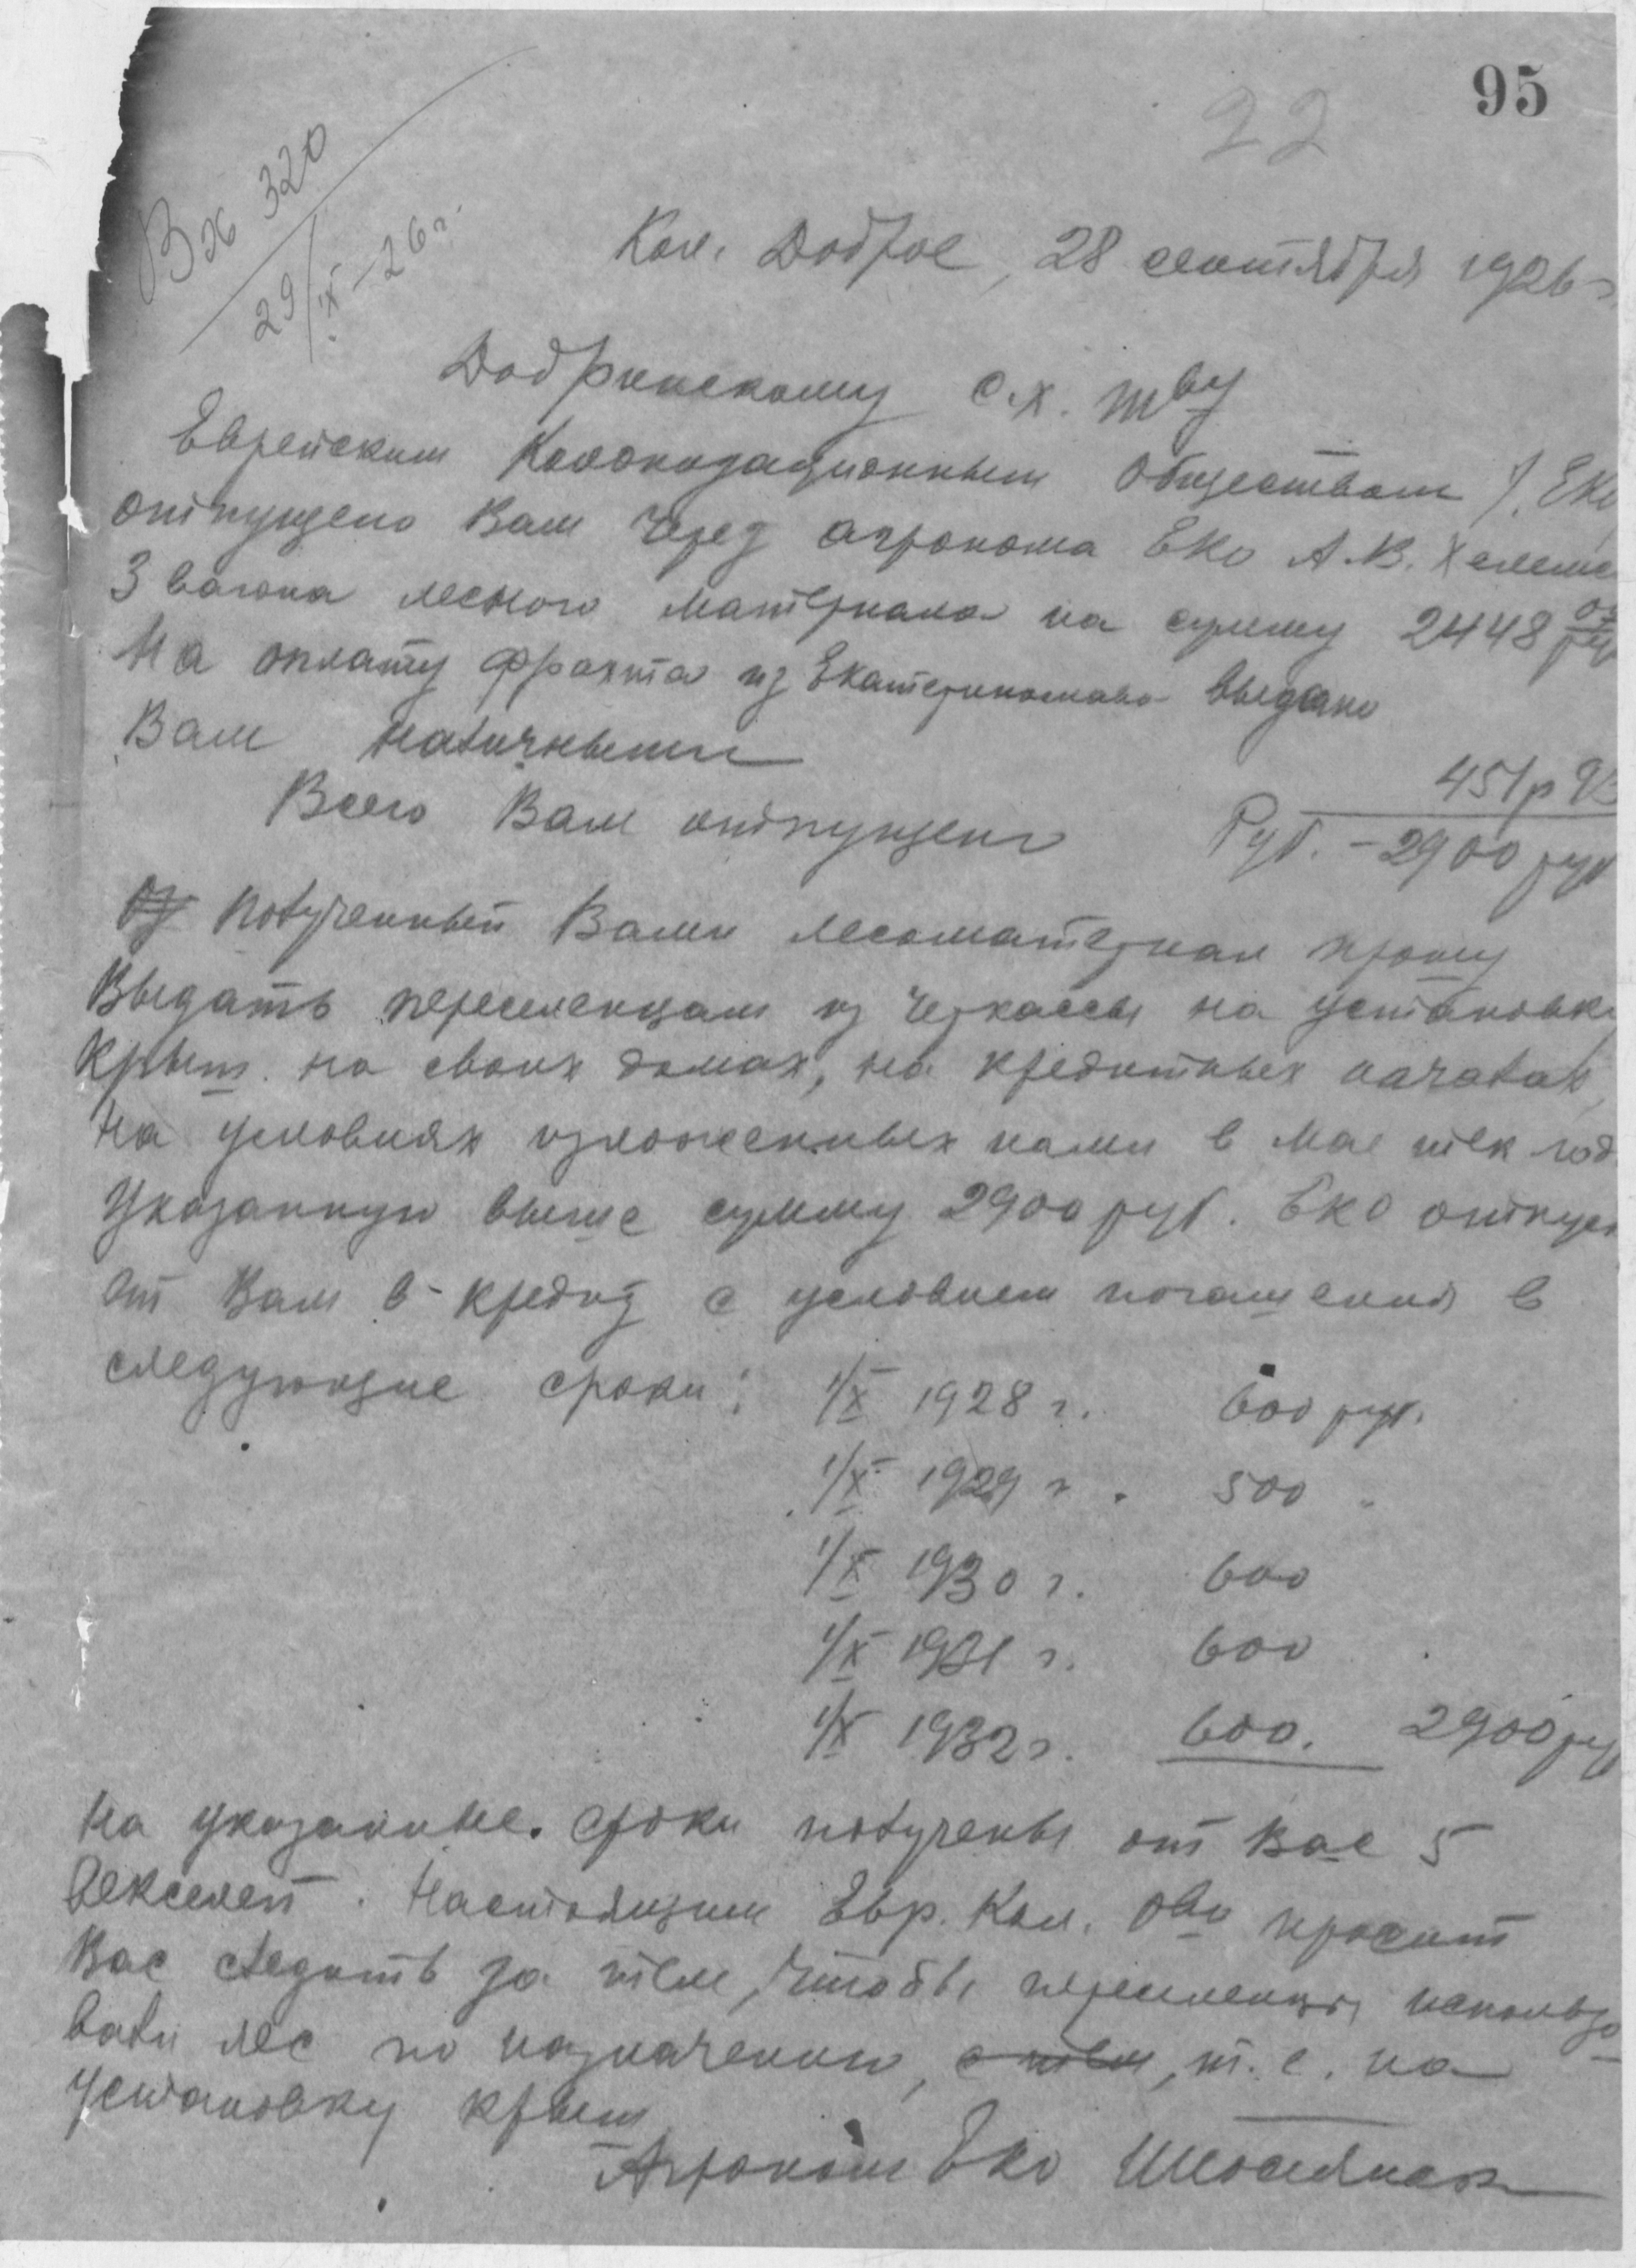 95
22
Вх 320
29/IX-26 г.
Кол. Доброе, 28 сентября 1926 г
Добринскому с.х. тву
Еврейским Колонизационным обществом /. ЕКО
отпущено Вам через агронома ЕКО А.В.
3 вагона лесного материала на сумму 2448
На оплату фрахта из Екатеринослава выдано
Вам наличными
451 р 93
Всего Вам отпущено Руб. - 2900 руб
Полученный Вами лесоматериал прошу
Выдать переселенцам из Черкассы на установку
Крыш на своих домах, на кредитных началах,
на условиях изложенных нами в Мае тек год.
Указанную выше сумму 2900 руб. ЕКО отпуск
ает Вам в кредит с условием погашения в
следующие сроки: 1/X 1928 г. 600 руб.
1/X 1929 г. 500 "
1/X 1930 г. 600
1/X 1931 г. 600
1/X 1932 г. 600. 2900 руб
На указанные сроки получены от Вас 5
векселей. Настоящим Евр. Кол. О-во просит
Вас следить за тем, чтобы переселенцы использо
вали лес по назначению, с тем, т.е. на
установку крыш
Агроном ЕКО